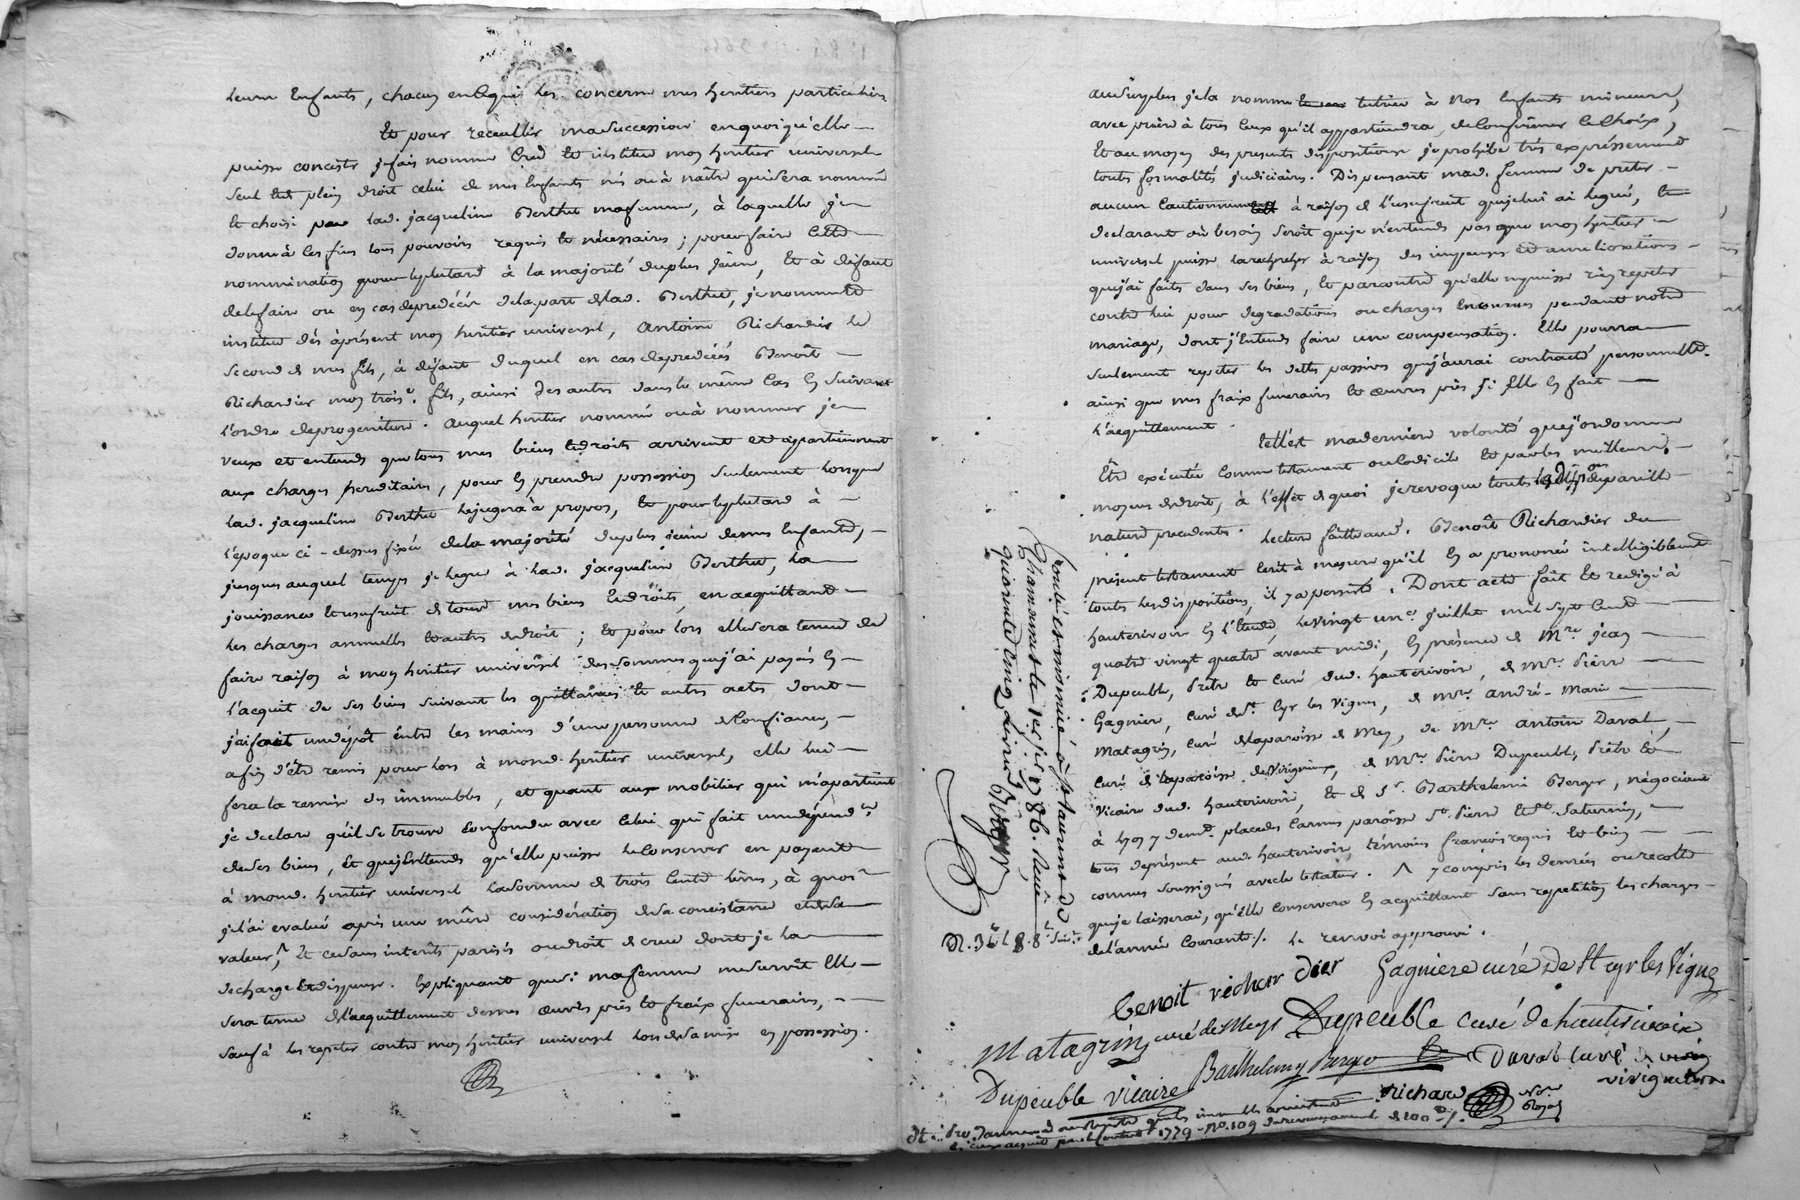 leurs Enfants, chacun en ce qui les concerne mes heritiers particuliers
Et pour receuillir ma succession en quoi qu'elle
puisse consister je fais nomme Crée et institue mon heritier universel
seul et de plein droit celui de mes Enfants nés ou à naître qui sera nommé
et choisi par lad. jacqueline Berthet ma femme, à laquelle je
donne à ces fins tous pouvoirs requis et nécessaires ; pour faire cette
nomination pour le plutard à la majorité du plus jeune, Et à défaut
de le faire ou en cas de predécés de la part de lad. Berthet, je nomme et
institue dés àprésent mon heritier universel, Antoine Richardier le
second de mes fils, à défaut duquel en cas de predécés Benoît
Richardier mon trois.e fils, ainsi des autres dans le même Cas En suivant
l'ordre de progeniture. auquel heritier nommé ou à nommer je
veux et entends que tous mes biens et droits arrivent et appartiennent
aux charges hereditaires, pour En prendre possession seulement lorsque
lad. jacqueline Berthet le jugera à propos, et pour le plutard à
l'époque ci-dessus fixée de la majorité du plus jeune de mes Enfants,
jusques auquel temps je legue à lad. jacqueline Berthet, la
jouissance et usufruit de tous mes biens et droits, en acquittant
les charges annuelles et autres de droit ; et pour lors elle sera tenue de
faire raison à mon heritier universel des sommes que j'ai payés En
l'acquit de ses biens suivant les quittances et autres actes dont
j'ai fait un dépôt entre les mains d'une personne de Confiance,
afin d'être remis pour lors à mond. heritier universel, elle lui
fera la remise des immeubles, et quant aux mobilier qui m'apartient
je declare qu'il se trouve confondu avec celui qui fait
de ses biens, Et que j'Entends qu'elle puisse le Conserver en payant
à mond. heritier universel la somme de trois Cents livres, à quoi
je l'ai evalué après une mûre considération de sa consistance et de sa
valeur, ^ Et ce sans interêts parisis ou droit de crue dont je la
decharge et dispense. Expliquant que si ma femme me survit Elle
sera tenue de l'acquittement de mes œuvres pies et fraix funeraires,
sauf à les repeter contre mon heritier universel lors de sa mise en possession.
au surplus je la nomme tutrice à nos Enfants mineurs,
avec priere à tous Ceux qu'il appartiendra, de Confirmer le Choix,
Et au moyen des presentes dispositions je prohibe trés expréssement
toutes formalités judiciaires. Dispensant mad. femme de preter
aucun Cautionnement à raison de l'usufruit que je lui ai legué, et
declarant où besoin seroit que je n'entends pas que mon heritier
universel puisse la rechercher à raison des impenses et ameliorations
que j'ai faits dans ses biens, Et parcontre qu'elle ne puisse rien repeter
contre lui pour degradations ou charges Encourues pendant notre
mariage, dont j'Entends faire une compensation. Elle pourra
seulement repeter les dettes passives que j'aurai contracté personnelle.
ainsi que mes fraix funeraires et œuvres pies si Elle En fait
l'acquittement.
telle est ma derniere volonté que j'ordonne
Etre executée comme testament ou Codicile et par les meilleurs
moyens de droit, à l'effet de quoi je revoque toutes de pareille
nature precedentes. Lecture faitte aud. Benoît Richardier du
présent testament Ecrit à mesure qu'il En a prononcé intelligiblement
toutes les dispositions, il y a persisté. Dont acte fait Et redigé à
hauterivoire En l'Etude, le vingt un.e juillet mil sept Cent
quatre vingt quatre avant midi, En présence de M.re jean
Dupeuble, Prêtre Et Curé dud. hauterivoire, de M.re Pierre
Gagniere, Curé de St. Cyr les Vignes, de M.re andré-Marie
Matagrin, Curé de la paroisse de Mey, de M.re antoine Daval,
Curé de la paroisse de Virigneux, de M.re Pierre Dupeuble, Prêtre Et
Vicaire dud. hauterivoire, Et de S.r Barthelemi Berger, négociant
à Lyon y dem.t place des Carmes paroisse St. Pierre et St. Saturnin,
tous deprésent aud. hauterivoire, témoins francois requis et bien
connus soussignés avec le testateur. ^ y compris les denrées ou recolte
que je laisserai, qu'elle conservera En acquittant sans repetition les charges
de l'année Courante /. le renvoi approuvé.
benoit richardier Gagniere curé De St cyr les Vignes
Matagrin curé de Meys Dupeuble curé de hauterivoire
Barthelemy Berger Daval curé de
virigneux
Dupeuble Vicaire Richard N.re
Royal
Controlé et insinué à St laurent de
Chamousset le 1er j.et 1786. Reçu
quarante cinq livres